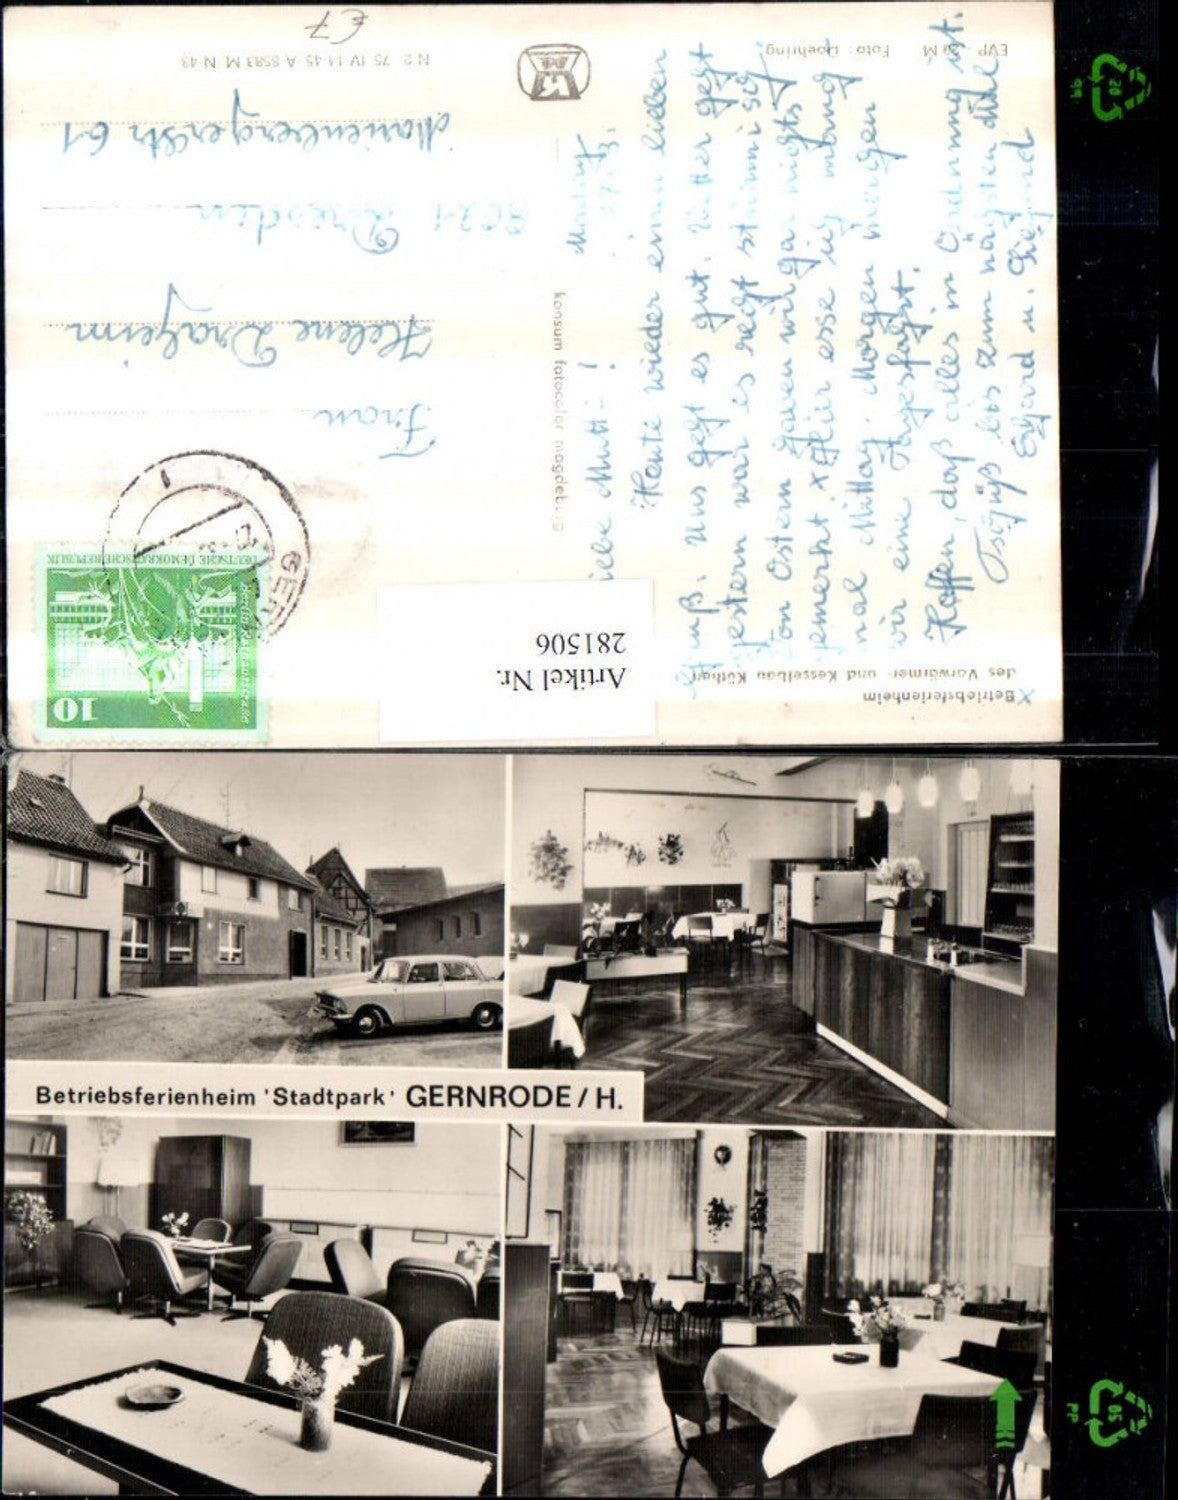 €7
N 2 75 IV-14-45 A 8583 M N 43
EVP -20 M Foto: Doehring
Betriebsferienheim
des Vorwärmer- und Kesselbau Köthen
konsum fotocolor magdeburg
10
DEUTSCHE DEMOKRATISCHE REPUBLIK
GER
Frau
Helene Drageim
8021 Dresden
Marienbergerstr 61
Montag
Liebe Mutti!
Heute wieder einen lieben
Gruß. Uns geht es gut. Wetter geht
gestern war es recht stürmisch
von Ostern haben wir gar nichts
gemerkt x Hier esse ich
mal Mittag. Morgen
wir eine Tagesfahrt.
Hoffen, daß alles in Ordnung ist.
Tschüß bis zum nächsten Mal
u. Siegrid
Artikel Nr.
281506
Betriebsferienheim 'Stadtpark' GERNRODE / H.
20
05
PP